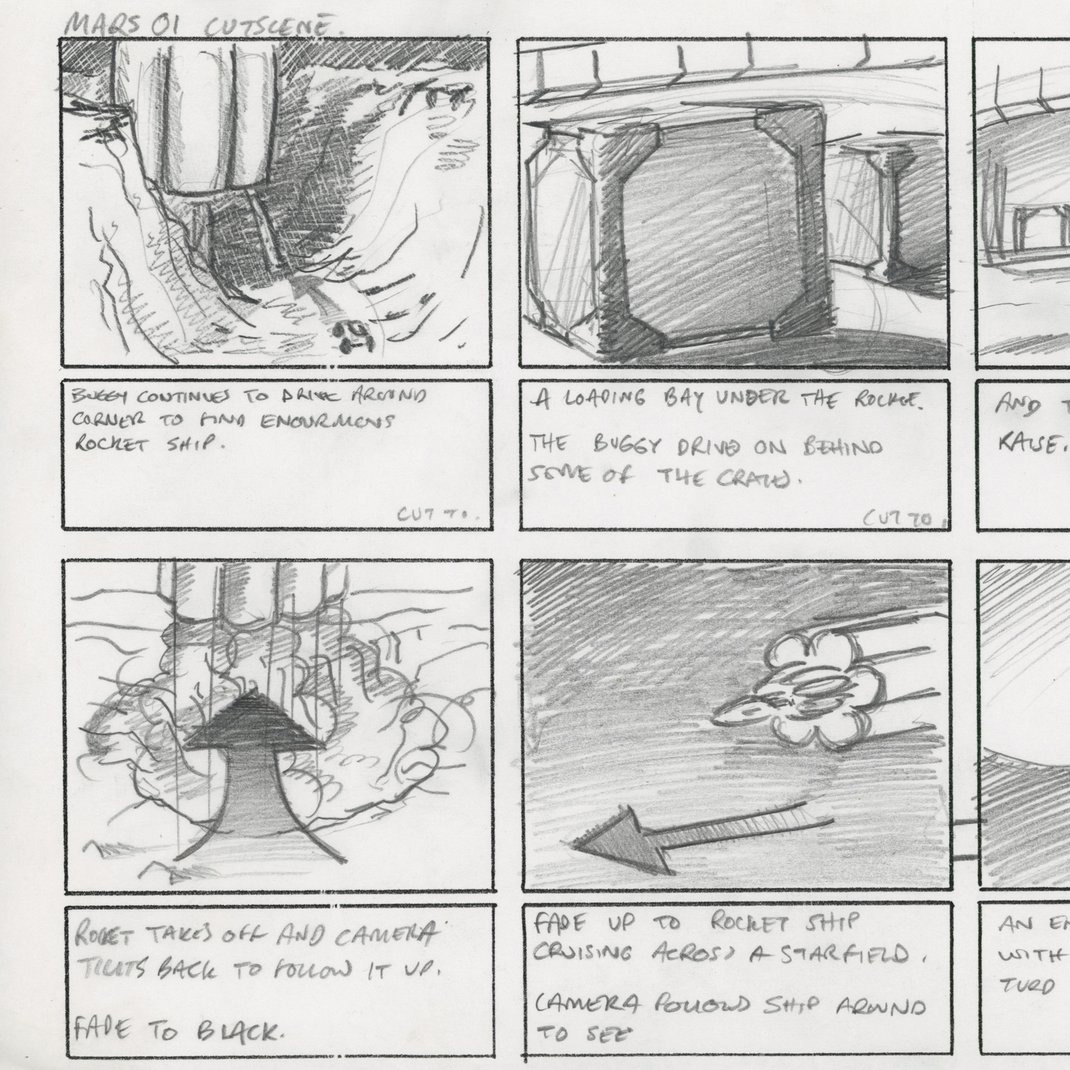 MARS 01 CUTSCENE.
BUGGY CONTINUES TO DRIVE AROUND
CORNER TO FIND ENOURMONS
ROCKET SHIP.
CUT TO.
A LOADING BAY UNDER THE ROCKET.
THE BUGGY DRIVES ON BEHIND
SOME OF THE CRATES.
CUT TO.
AND T
RAISE.
ROCKET TAKES OFF AND CAMERA
TILTS BACK TO FOLLOW IT UP.
FADE TO BLACK.
FADE UP TO ROCKET SHIP
CRUISING ACROSS A STARFIELD.
CAMERA FOLLOWS SHIP AROUND
TO SEE
AN EN
WITH
TURD